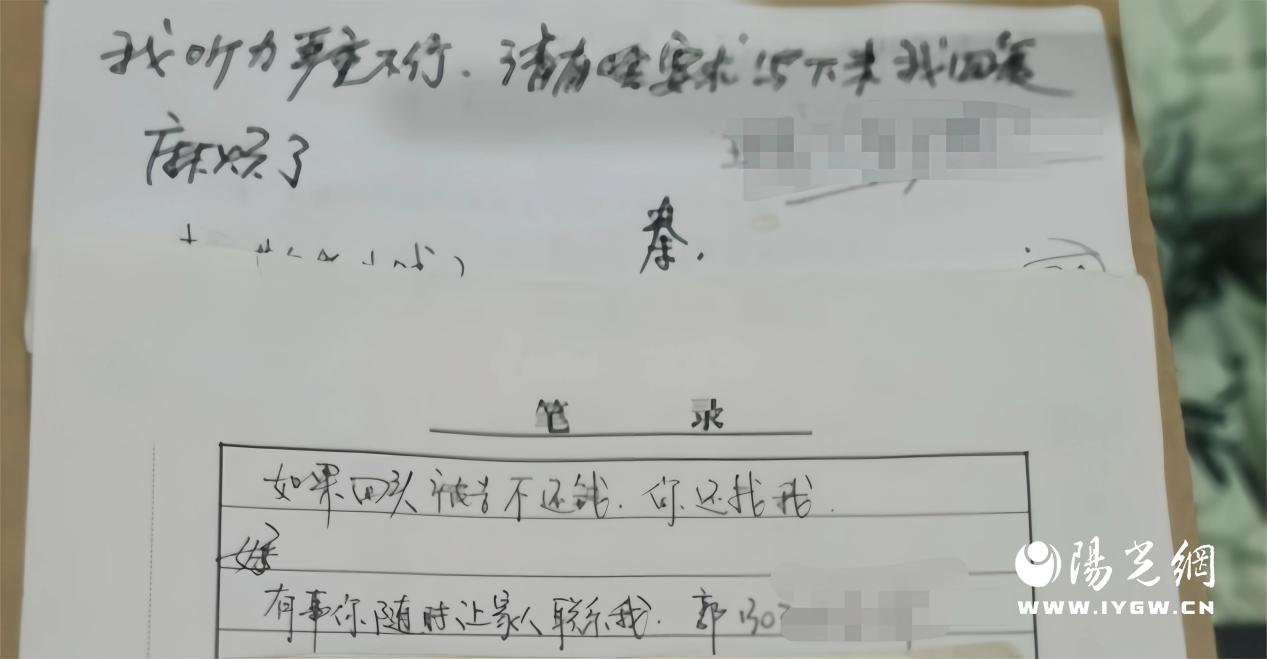 我听力严重不行.请有啥要求写下来我回答
麻烦了
秦.
笔 录
如果回头被告不还钱.你还找我.
好
有事你随时让家人联系我.郭130
陽光網
WWW.IYGW.CN